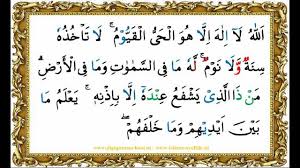 اَللّٰهُ لَآ اِلٰهَ اِلَّا هُوَ الْحَیُّ الْقَیُّوْمُ ۚ لَا تَاْخُذُهٗ
سِنَةٌ وَّلَا نَوْمٌ ؕ لَهٗ مَا فِی السَّمٰوٰتِ وَمَا فِی الْاَرْضِ ؕ
مَنْ ذَا الَّذِیْ یَشْفَعُ عِنْدَهٗۤ اِلَّا بِاِذْنِهٖ ؕ یَعْلَمُ مَا
بَیْنَ اَیْدِیْهِمْ وَمَا خَلْفَهُمْ ۚ